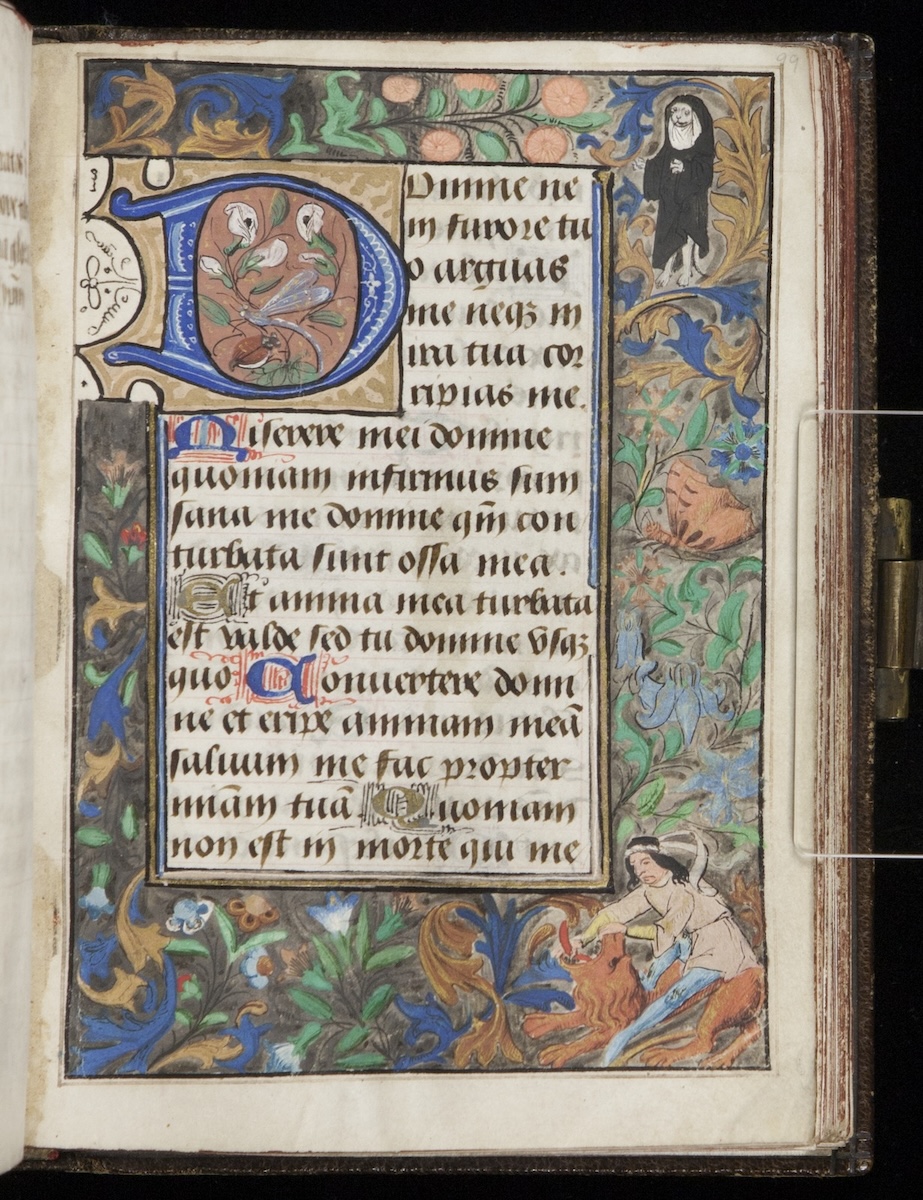 99
Domine ne
in furore tu
o arguas
me neqꝫ in
ira tua cor
ripias me.
Miserere mei domine
quoniam infirmus sum
sana me domine qm̃ con
turbata sunt ossa mea.
Et anima mea turbata
est valde sed tu domine vsqꝫ
quo Conuertere domi
ne et eripe animam meã
saluum me fac propter
miãm tuã Quoniam
non est in morte qui me